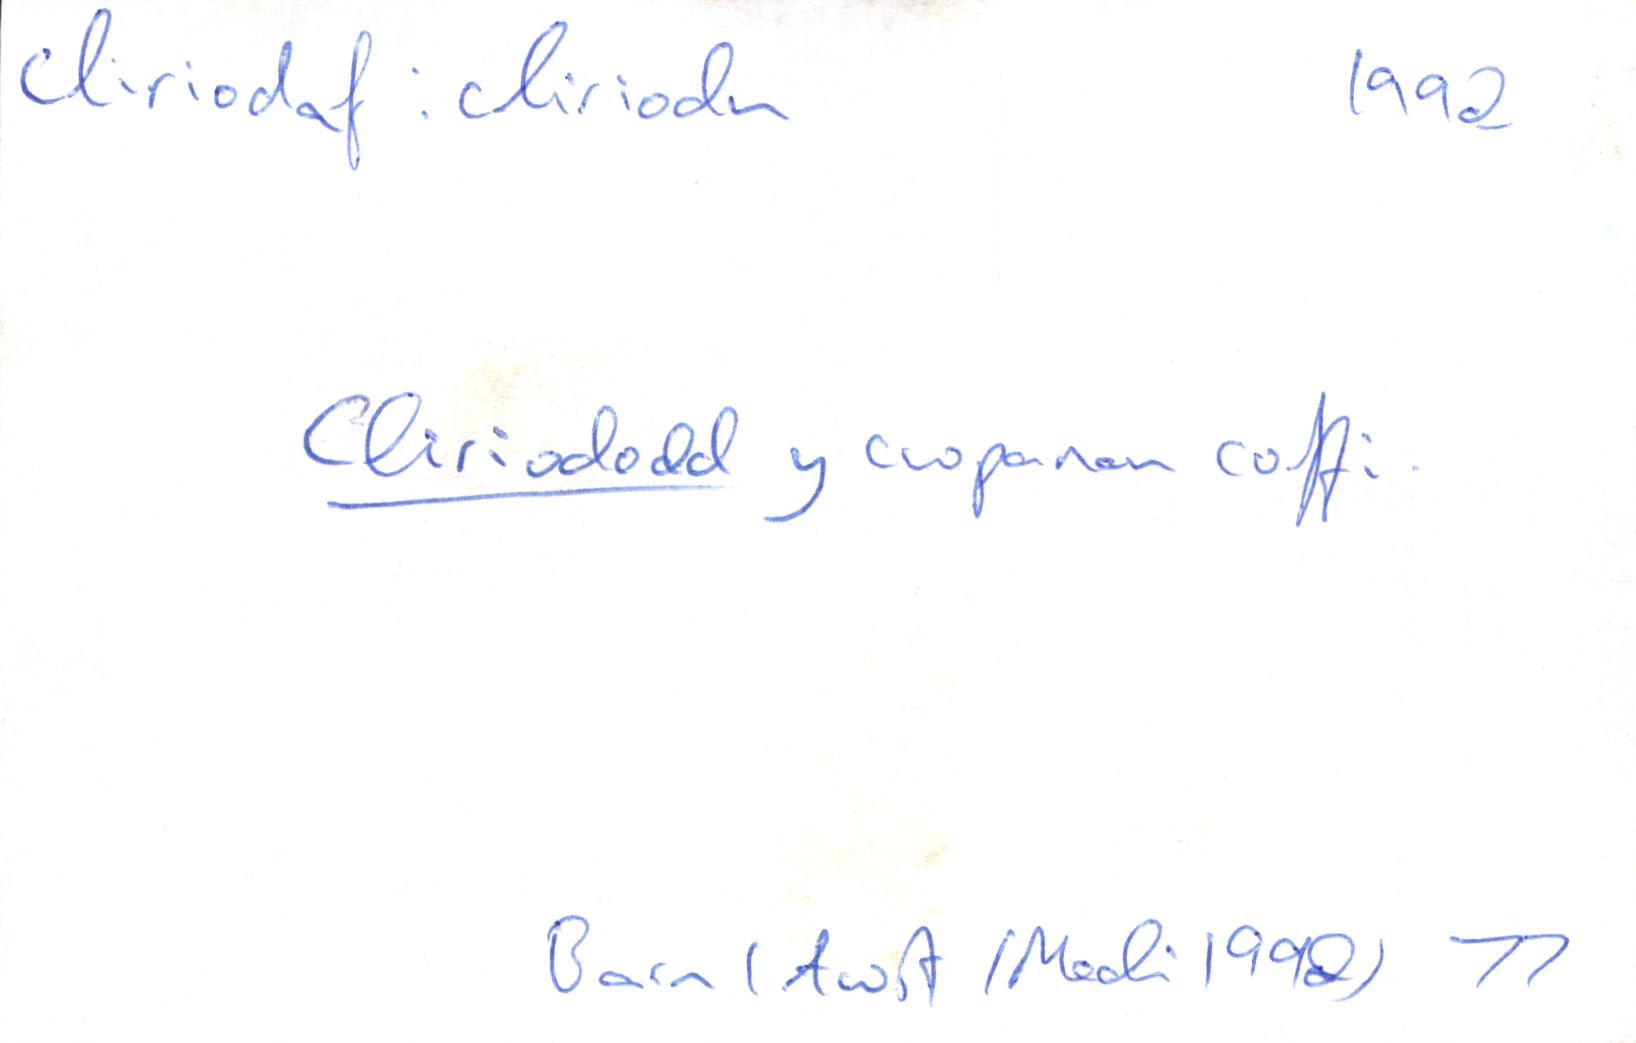 cliriodaf : cliriodu 1992
Cliriododd y cwpanau coffi.
Barn (Awst / Medi 1992) 77